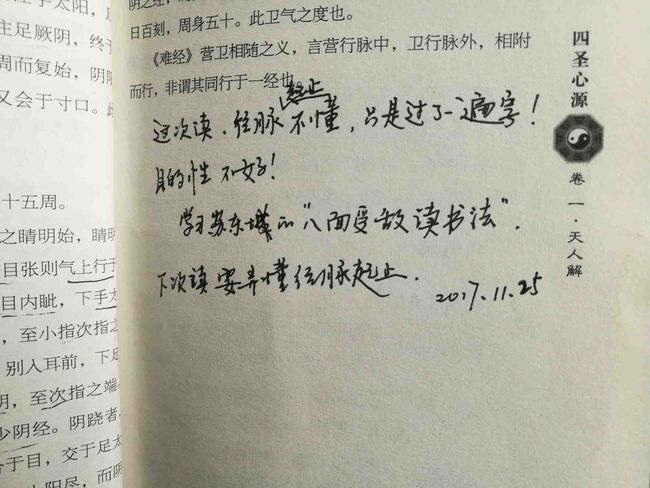 主足厥阴，终于
周而复始，阴阳
又会于寸口。
十五周。
之睛明始，睛明
目张则气上行于
目内眦，下手太
，至小指次指
别入耳前，下足
明，至次指之端
少阴经。阴跷者
于目，交于足太
阳尽，而阴
日百刻，周身五十。此卫气之度也。
《难经》营卫相随之义，言营行脉中，卫行脉外，相附
而行，非谓其同行于一经也。
起止
这次读，经脉不懂，只是过了一遍字！
目的性不好！
学习苏东坡的“八面受敌读书法”．
下次读要弄懂经脉起止．
2017.11.25
四圣心源
卷一·天人解